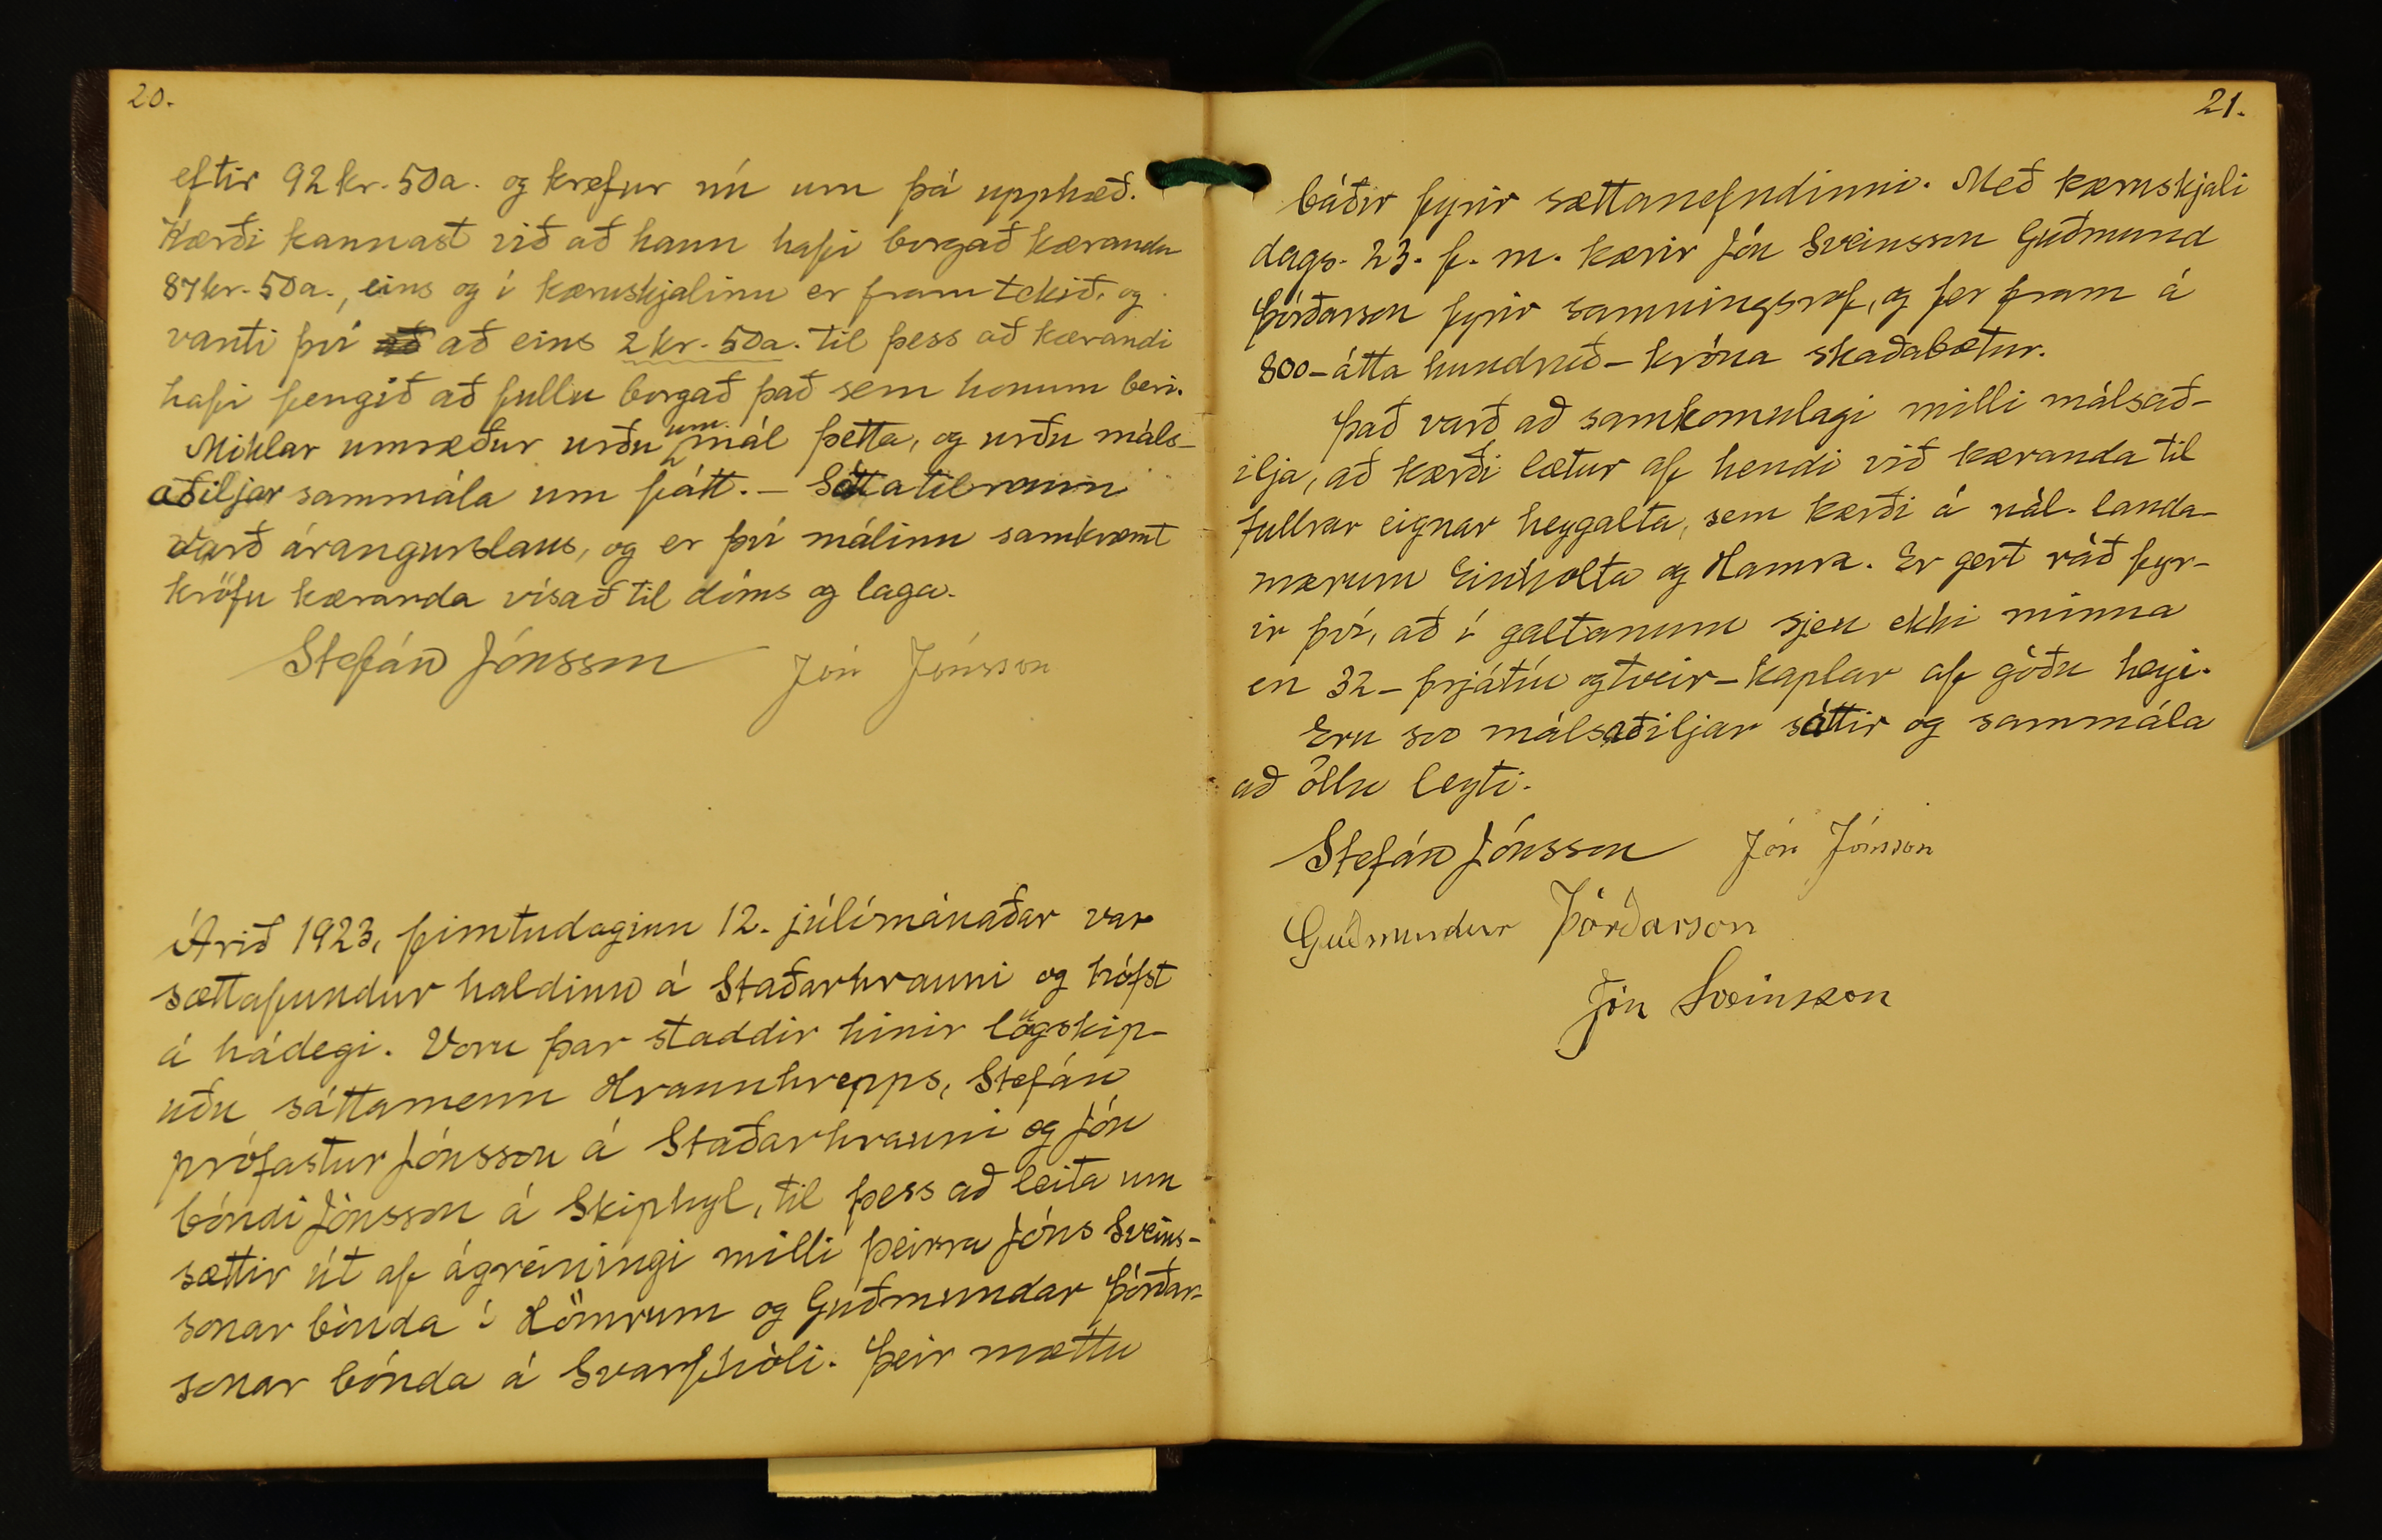 20.
eftir 92 kr. 50 a. og krefur nú um þá upphæð.
Kærði kannast við að hann hafi borgað kæranda
87 kr. 50 a., eins og í kæruskjalinu er fram tekið, og
vanti því að að eins 2 kr. 50 a. til þess að kærandi
hafi fengið að fullu borgað það sem honum beri.
Miklar umræður urðu um mál þetta, og urðu máls-
aðiljar sammála um fátt. – Sáttatilraun
varð árangurslaus, og er því málinu samkvæmt
kröfu kæranda vísað til dóms og laga.
Stefán Jónsson Jón Jónsson
Árið 1923, fimtudaginn 12. júlímánaðar var
sættafundur haldinn á Staðarhrauni og hófst
á hádegi. Voru þar staddir hinir lögskip-
uðu sáttamenn Hraunhrepps, Stefán
prófastur Jónsson á Staðarhrauni og Jón
bóndi Jónsson á Skiphyl, til þess að leita um
sættir út af ágreiningi milli þeirra Jóns Sveins-
sonar bónda í Hömrum og Guðmundar Þórðar-
sonar bónda á Svarfhóli. Þeir mættu
21.
báðir fyrir sættanefndinni. Með kæruskjali
dags. 23. f. m. kærir Jón Sveinsson Guðmund
Þórðarson fyrir samningsrof, og fer fram á
800 – átta hundruð – króna skaðabætur.
Það varð að samkomulagi milli málsað-
ilja, að kærði lætur af hendi við kæranda til
fullrar eignar heygalta, sem kærði á nál. landa-
mærum Einholta og Hamra. Er gert ráð fyr-
ir því, að í galtanum sjeu ekki minna
en 32 – þrjátíu og tveir – kaplar af góðu heyi.
Eru svo málsaðiljar sáttir og sammála
að öllu leyti.
Stefán Jónsson Jón Jónsson
Guðmundur Þórðarson
Jón Sveinsson